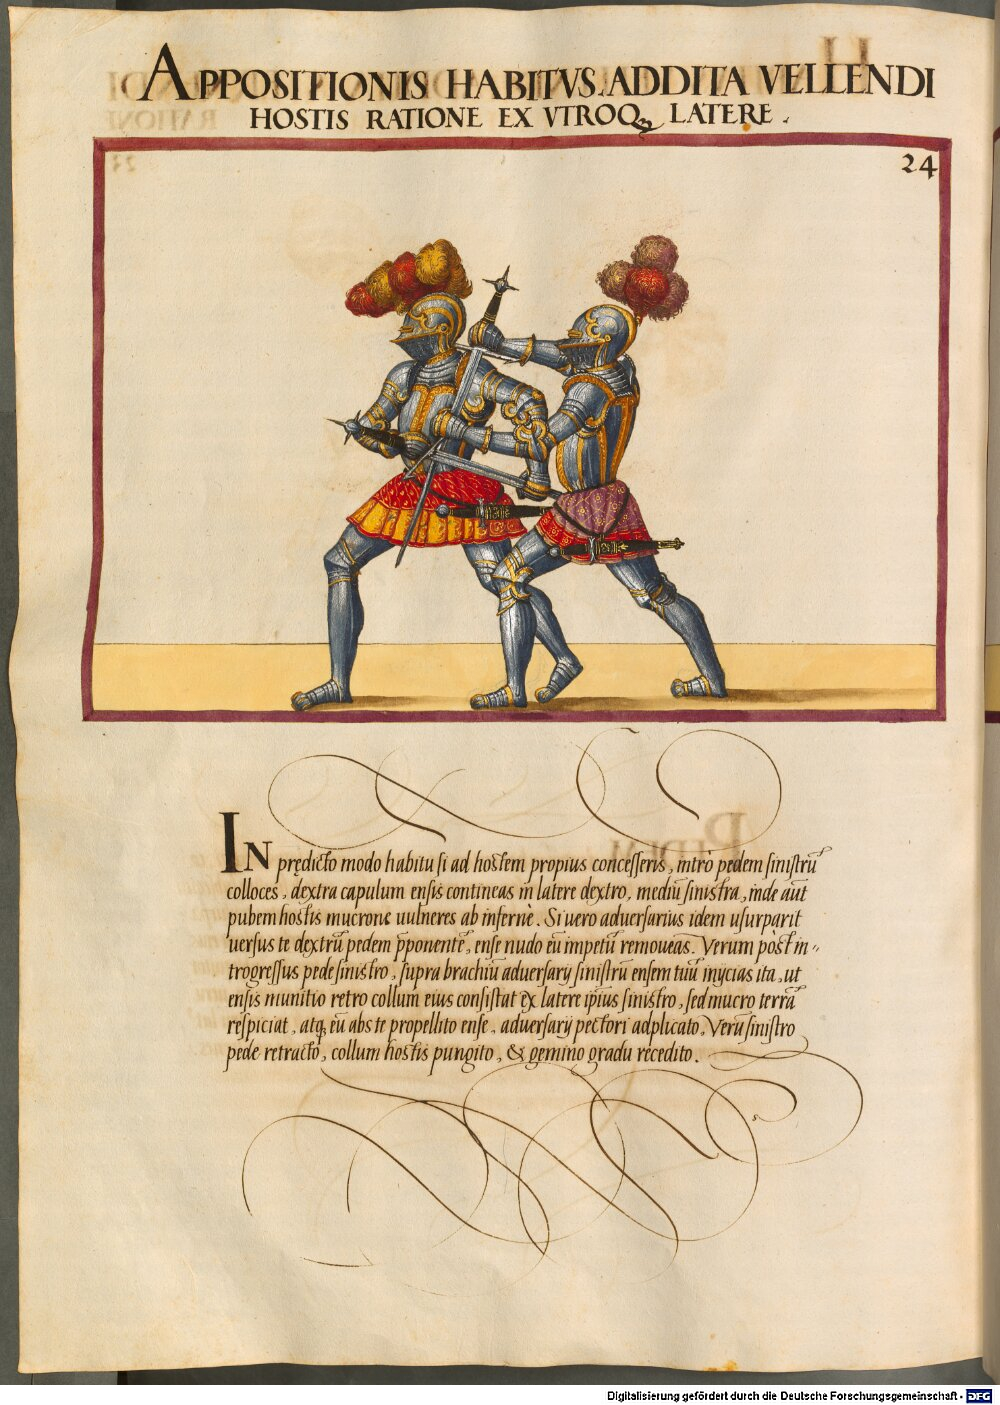 APPOSITIONIS HABITVS. ADDITA VELLENDI
HOSTIS RATIONE EX VTROQꝫ LATERE.
24
IN prędicto modo habitu si ad hostem propius concesseris, intrò pedem sinistrũ
colloces, dextra capulum ensis contineas in latere dextro, mediũ sinistra, inde aũt
pubem hostis mucrone uulneres ab infernè. Si uero aduersarius idem usurparit
uersus te dextrũ pedem p̱ponentẽ, ense nudo eũ impetũ remoueas. Verum pòst in-
trogressus pede sinistro, supra brachiũ aduersarij sinistrũ ensem tuũ inijcias ita, ut
ensis munitio retro collum eius consistat ex latere ipsius sinistro, sed mucro terrã
respiciat, atqꝫ eũ abs te propellito ense, aduersarij pectori adplicato, Verũ sinistro
pede retracto, collum hostis pungito, & gemino gradu recedito.
Digitalisierung gefördert durch die Deutsche Forschungsgemeinschaft - DFG